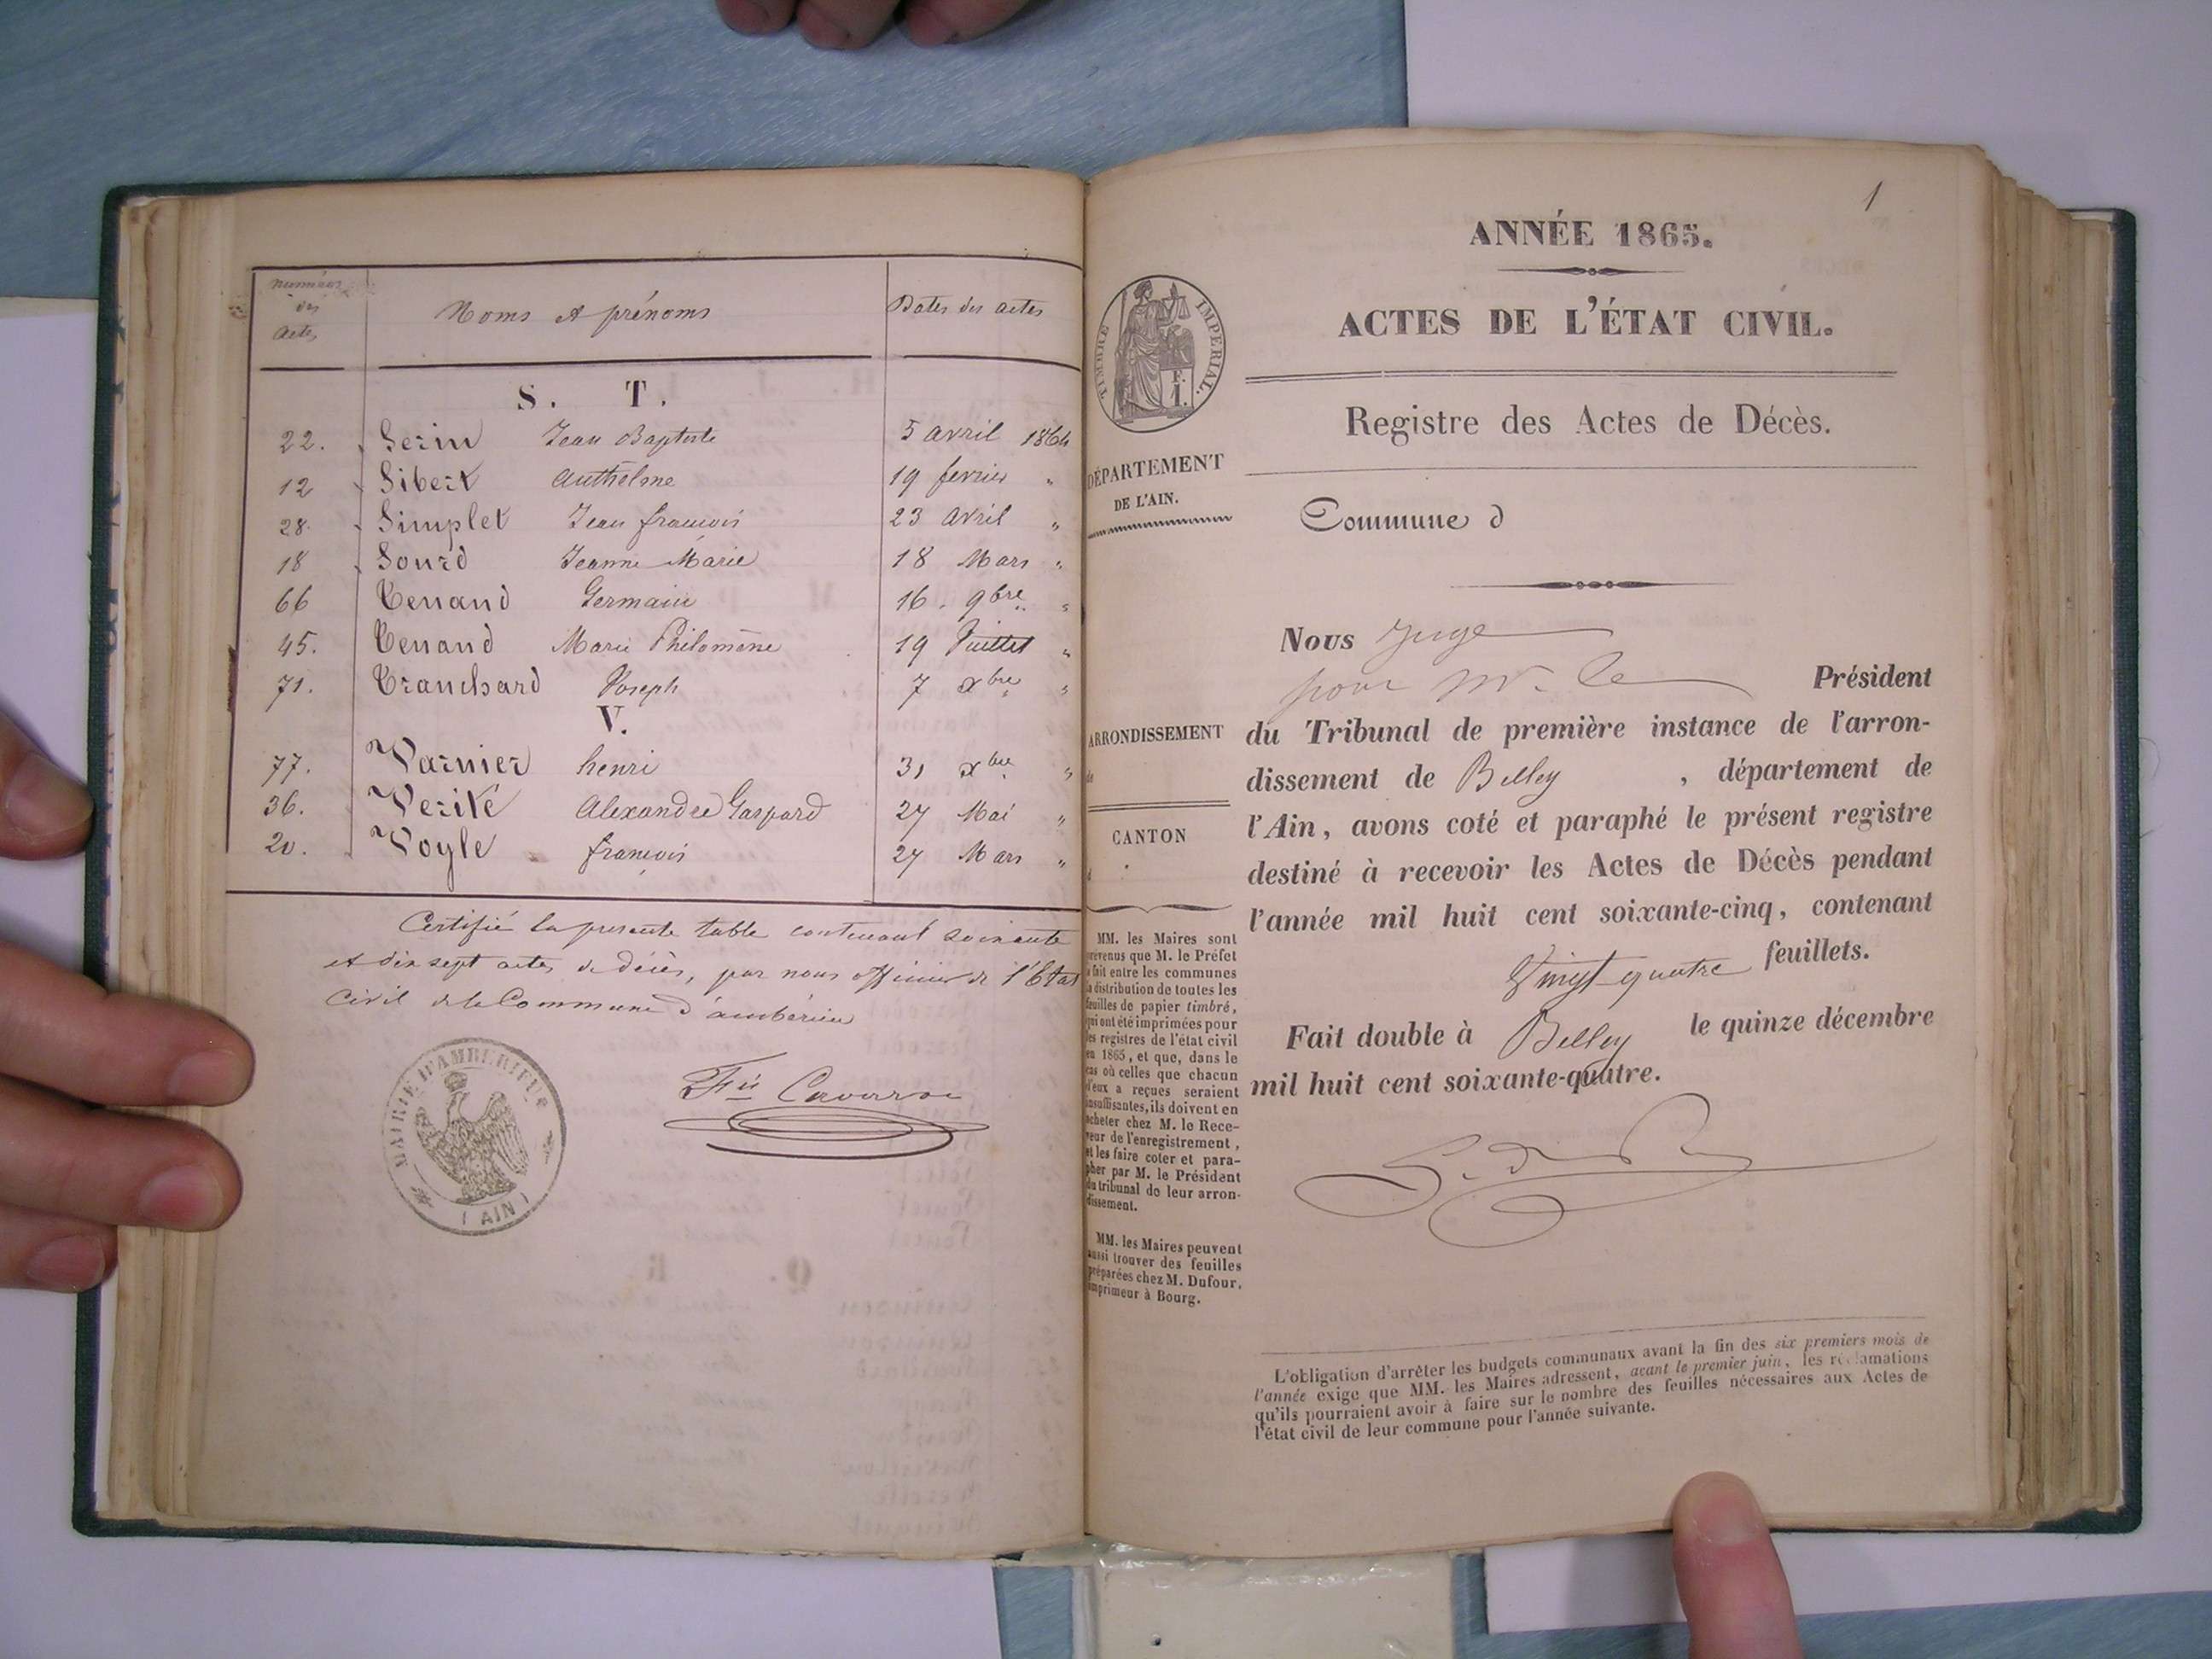 numéros des actes
Noms et prénoms
Dates des actes
S. T.
22. Serin Jean Baptiste 5 avril 1864
12 Sibert Anthelme 19 fevrier "
28. Simplet Jean francois 23 avril "
18 Sourd Jeanne Marie 18 Mars "
66 Tenand Germain 16. 9bre "
45. Tenand Marie Philomène 19 Juillet "
71. Tranchard Joseph 7 xbre "
V.
77. Varnier henri 31 xbre "
36. Verité Alexandre Gaspard 27 Mai "
20. Voyle francois 27 Mars "
Certifié la presente table contenant soixante
et dix sept actes de décès, par nous officier de l'Etat
Civil de la Commune d'ambérieu
MAIRIE D'AMBERIEUX
(AIN)
1
ANNÉE 1865.
ACTES DE L'ÉTAT CIVIL.
TIMBRE IMPERIAL.
F.
1.
Registre des Actes de Décès.
DÉPARTEMENT
DE L'AIN.
Commune d
Nous juge
pour Mr. le Président
ARRONDISSEMENT
de
du Tribunal de première instance de l'arron-
dissement de Belley , département de
CANTON
d
l'Ain, avons coté et paraphé le présent registre
destiné à recevoir les Actes de Décès pendant
l'année mil huit cent soixante-cinq, contenant
Vingt quatre feuillets.
Fait double à Belley le quinze décembre
mil huit cent soixante-quatre.
MM. les Maires sont
prévenus que M. le Préfet
a fait entre les communes
la distribution de toutes les
feuilles de papier timbré,
qui ont été imprimées pour
les registres de l'état civil
en 1865, et que, dans le
cas où celles que chacun
d'eux a reçues seraient
insuffisantes, ils doivent en
acheter chez M. le Rece-
veur de l'enregistrement,
et les faire coter et para-
pher par M. le Président
du tribunal de leur arron-
dissement.
MM. les Maires peuvent
aussi trouver des feuilles
préparées chez M. Dufour,
imprimeur à Bourg.
L'obligation d'arrêter les budgets communaux avant la fin des six premiers mois de
l'année exige que MM. les Maires adressent, avant le premier juin, les réclamations
qu'ils pourraient avoir à faire sur le nombre des feuilles nécessaires aux Actes de
l'état civil de leur commune pour l'année suivante.